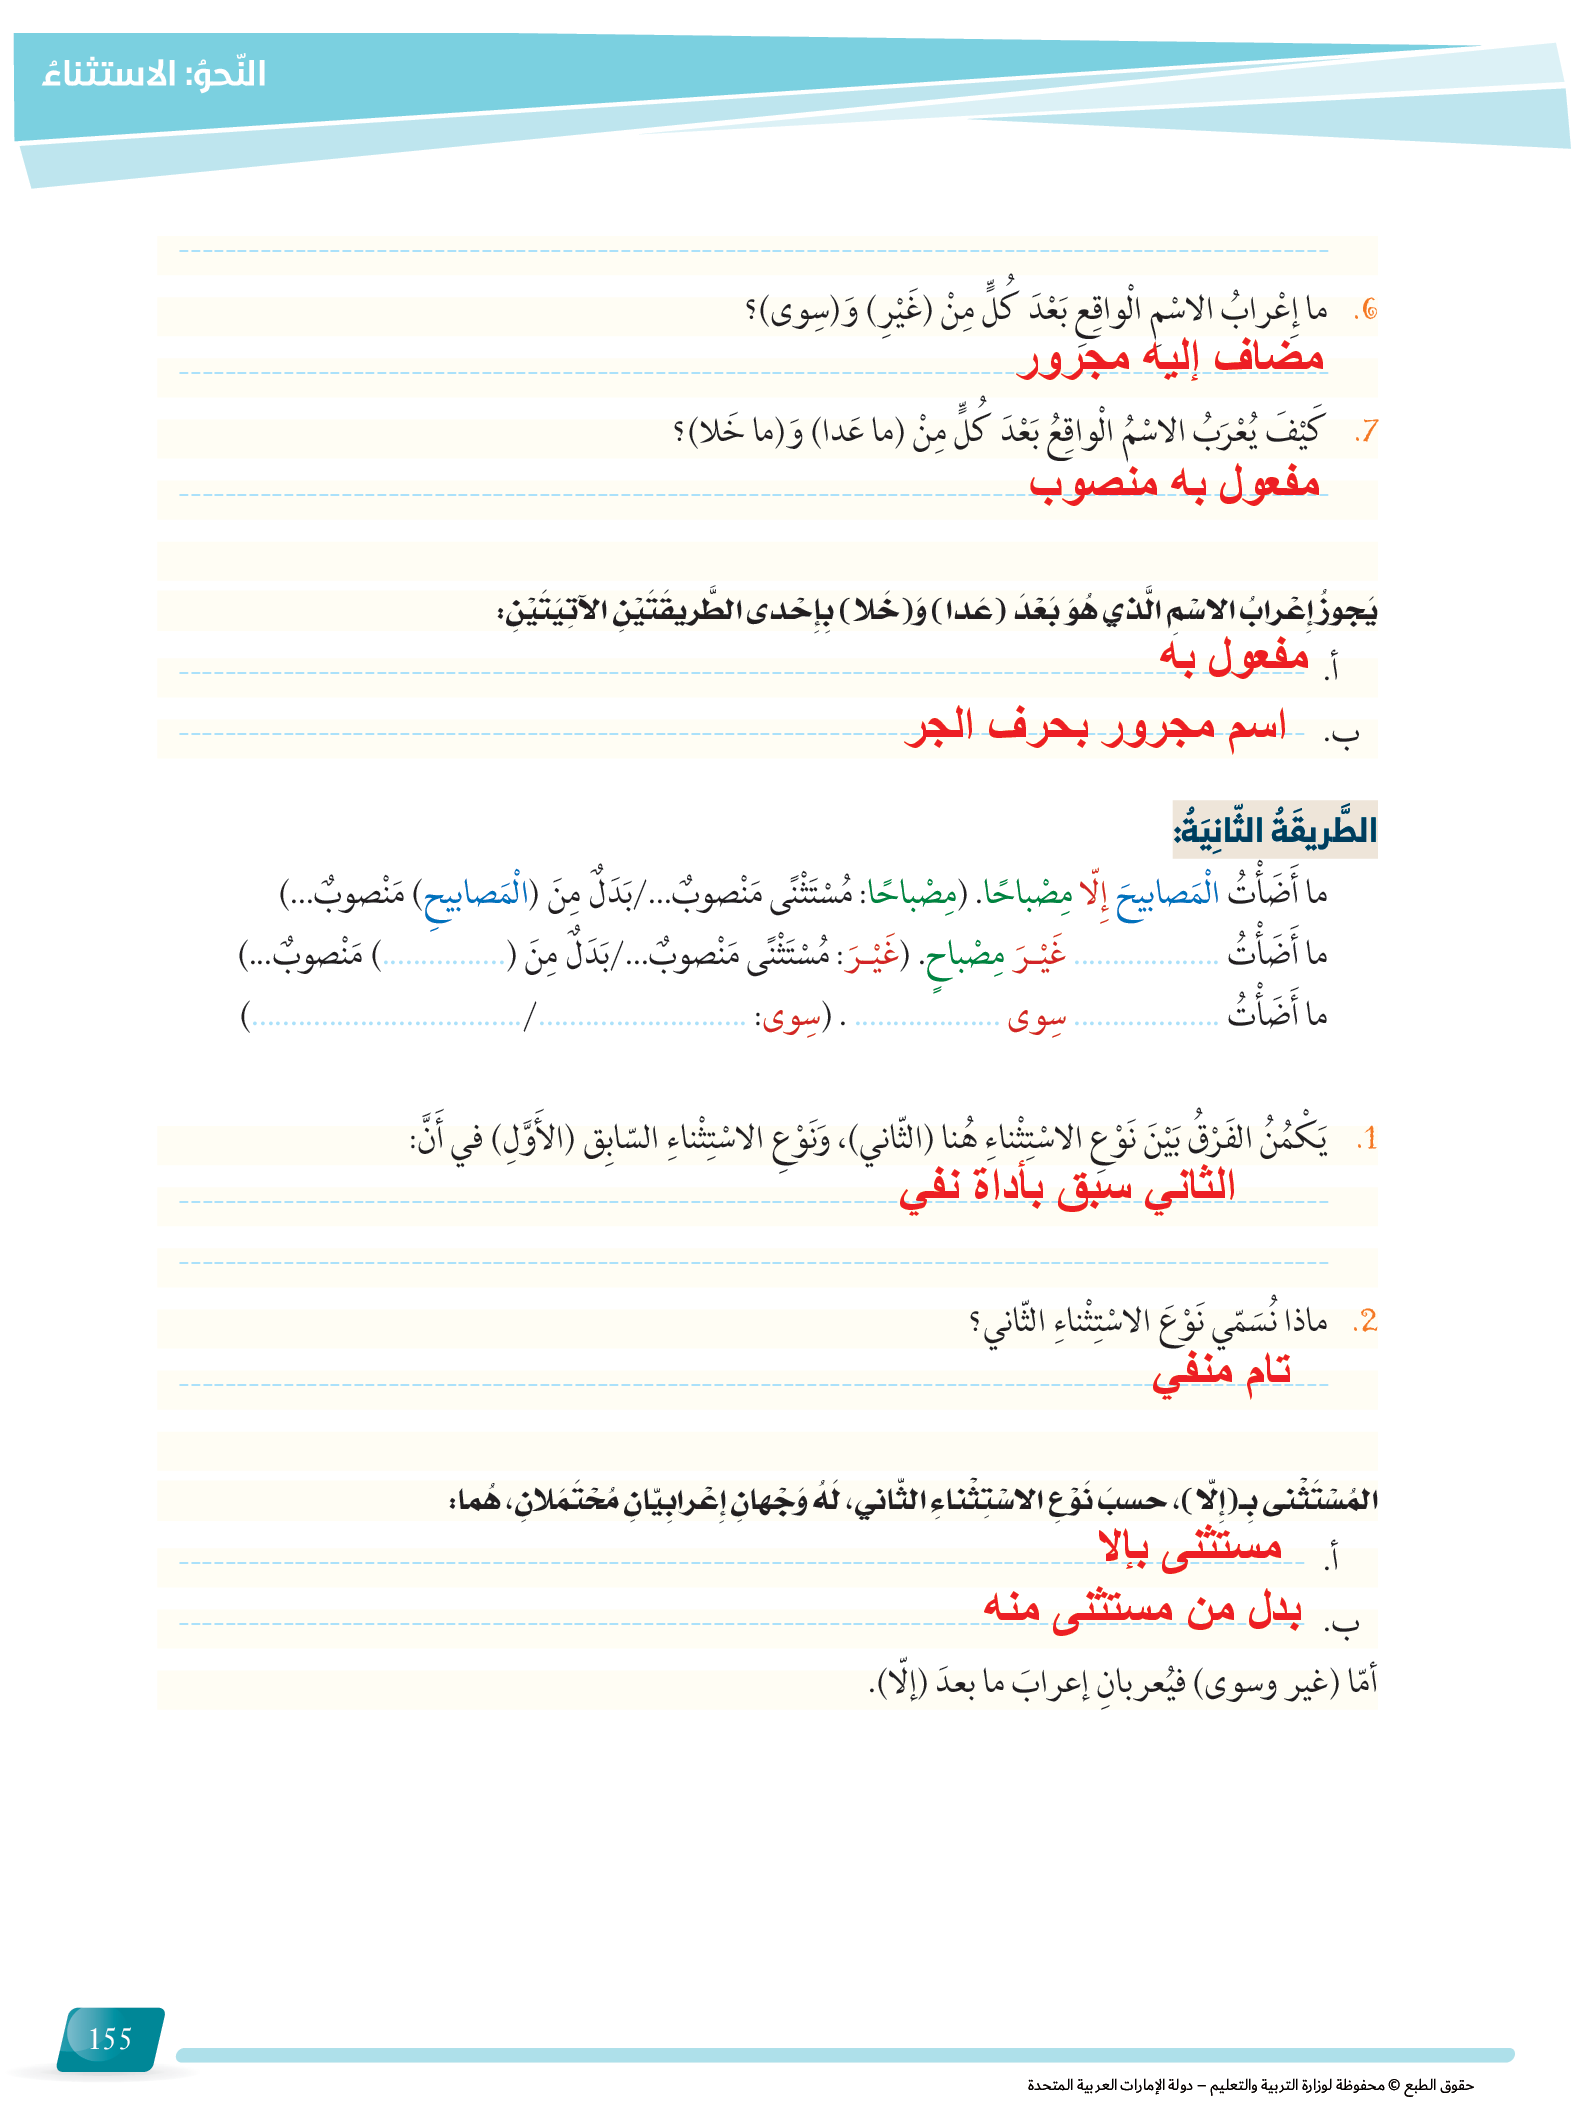 النّحوُ: الاستثناءُ
6. ما إِعْرابُ الاسْمِ الْواقِعِ بَعْدَ كُلٍّ مِنْ (غَيْرِ) وَ(سِوى)؟
مضاف إليه مجرور
7. كَيْفَ يُعْرَبُ الاسْمُ الْواقِعُ بَعْدَ كُلٍّ مِنْ (ما عَدا) وَ(ما خَلا)؟
مفعول به منصوب
يَجوزُ إِعْرابُ الاسْمِ الَّذي هُوَ بَعْدَ (عَدا) وَ(خَلا) بِإِحْدى الطَّريقَتَيْنِ الآتِيَتَيْنِ:
أ. مفعول به
ب. اسم مجرور بحرف الجر
الطَّريقَةُ الثّانِيَةُ:
ما أَضَأْتُ الْمَصابيحَ إِلّا مِصْباحًا. (مِصْباحًا: مُسْتَثْنًى مَنْصوبٌ.../بَدَلٌ مِنَ (الْمَصابيحِ) مَنْصوبٌ...)
ما أَضَأْتُ ................... غَيْـرَ مِصْباحٍ. (غَيْـرَ: مُسْتَثْنًى مَنْصوبٌ.../بَدَلٌ مِنَ (................) مَنْصوبٌ...)
ما أَضَأْتُ ................... سِوى ................... . (سِوى: ........................... / ...................................)
1. يَكْمُنُ الفَرْقُ بَيْنَ نَوْعِ الاسْتِثْناءِ هُنا (الثّاني)، وَنَوْعِ الاسْتِثْناءِ السّابِق (الأَوَّلِ) في أَنَّ:
الثاني سبق بأداة نفي
2. ماذا نُسَمّي نَوْعَ الاسْتِثْناءِ الثّاني؟
تام منفي
المُسْتَثْنى بِـ(إِلّا)، حسبَ نَوْعِ الاسْتِثْناءِ الثّاني، لَهُ وَجْهانِ إِعْرابِيّانِ مُحْتَمَلانِ، هُما:
أ. مستثنى بإلا
ب. بدل من مستثنى منه
أمّا (غير وسوى) فيُعربانِ إعرابَ ما بعدَ (إلّا).
155
حقوق الطبع © محفوظة لوزارة التربية والتعليم – دولة الإمارات العربية المتحدة